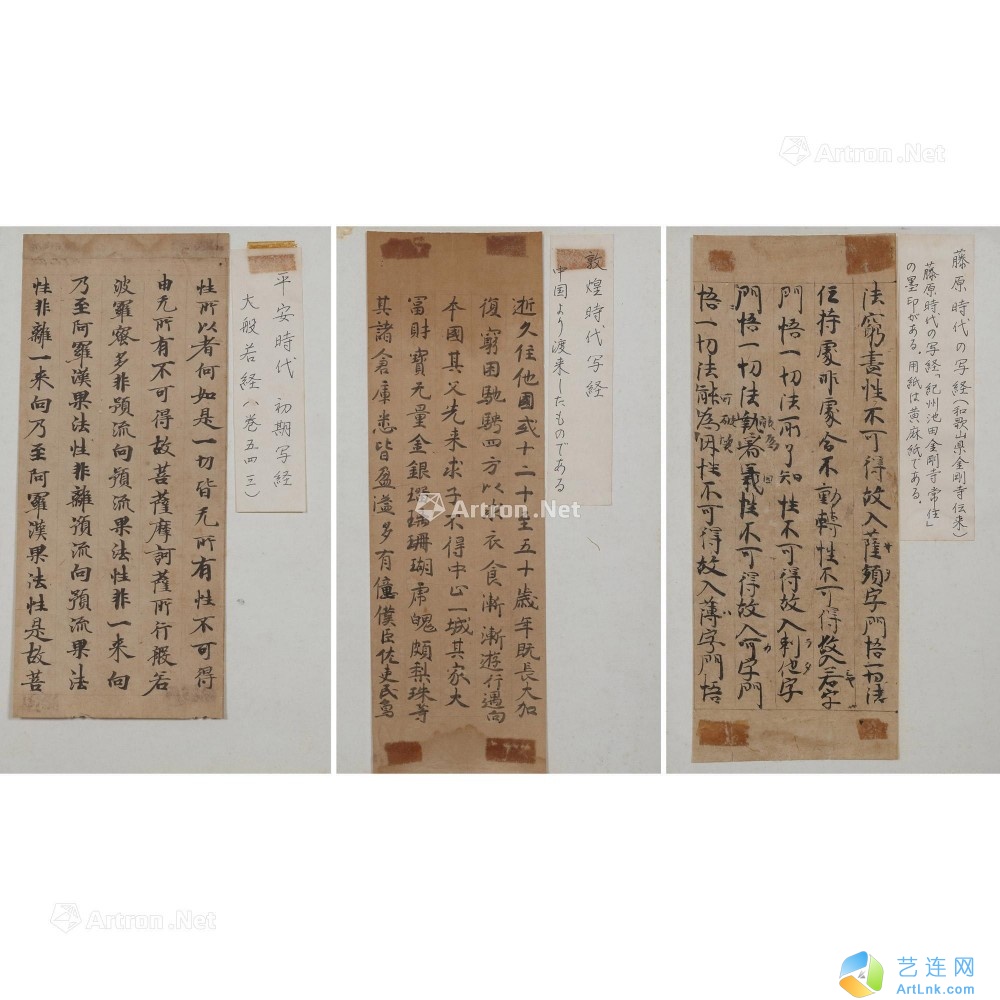 Artron.Net
平安時代 初期写経
大般若経(巻五四三)
性所以者何如是一切皆无所有性不可得
由无所有不可得故菩薩摩訶薩所行般若
波羅蜜多非預流向預流果法性非一来向
乃至阿羅漢果法性非離預流向預流果法
性非離一来向乃至阿羅漢果法性是故菩
敦煌時代写経
中国より渡来したものである
逝久住他國或十二十至五十歳年既長大加
復窮困馳騁四方以求衣食漸漸遊行遇向
本國其父先来求子不得中止一城其家大
冨財寶无量金銀珊瑚虎魄頗梨珠等
其諸倉庫悉皆盈溢多有僮僕臣佐吏民
Artron.Net
藤原時代の写経(和歌山県金剛寺伝来)
藤原時代の写経、「紀州池田金剛寺常住」
の墨印がある。用紙は黄麻紙である。
法窮盡性不可得故入薩頗字門悟一切法
任持處非處令不動轉性不可得故入若字
門悟一切法所了知性不可得故入剌他字
門悟一切法執著義性不可得故入呵字門
悟一切法能為因性不可得故入薄字門悟
Artron.Net
艺连网
ArtLnk.com